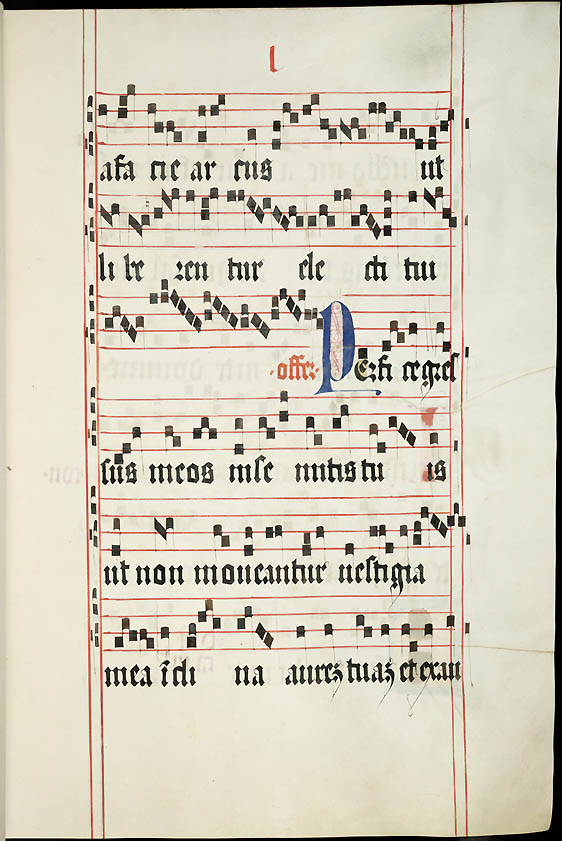 l
afa cie ar cus ut
li be ren tur ele cti tui
offer. Perfi ce gres
sus meos inse mitis tu is
ut non moueantur uestigia
mea icli na aurez tuaz et exau